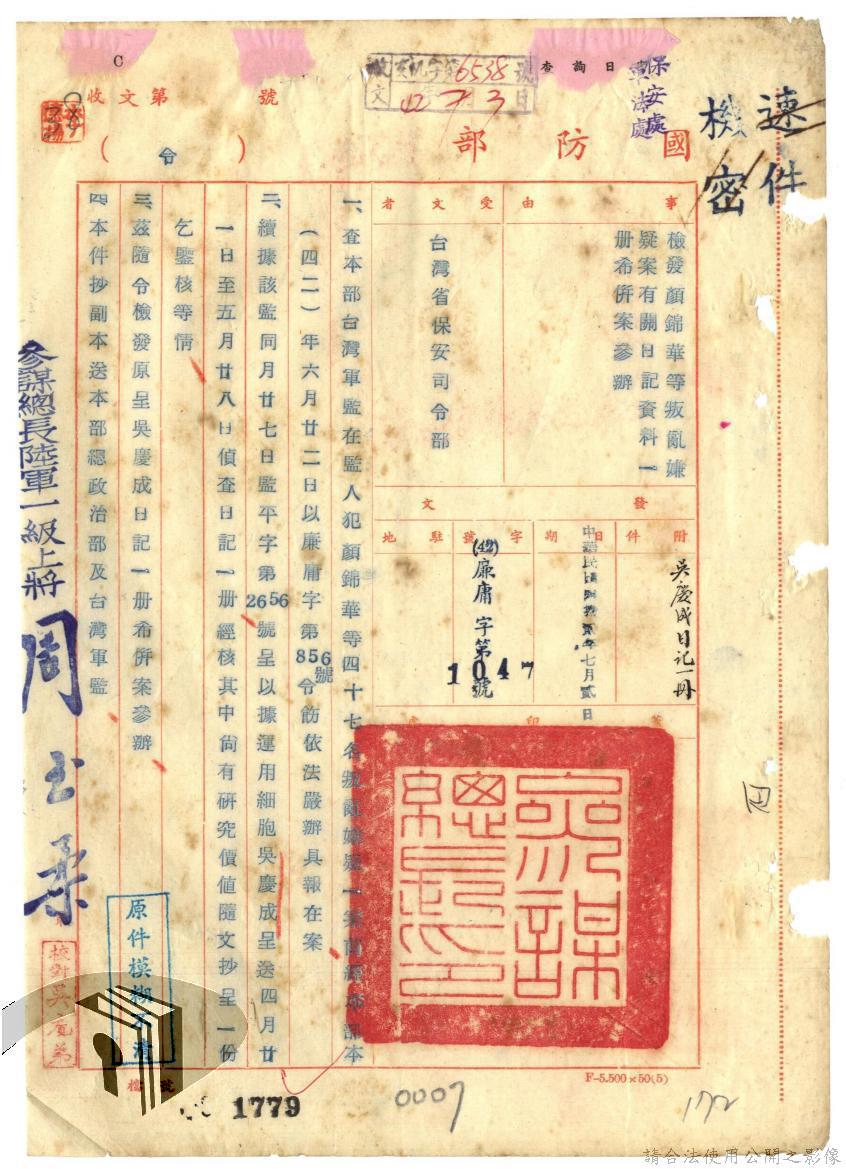 速件
機密
保安處
軍法處
C
查詢日
收文 字第6538號
42 7 3日
收文第 號
國防部
(令)
事由
檢發顏錦華等叛亂嫌
疑案有關日記資料一
册希併案參辦
受文者
台灣省保安司令部
發文
附件
吳慶成日記一冊
日期
中華民國 年七月貳日
字號
(42)廉庸字第1047號
駐地
印
參謀總長之印
一、查本部台灣軍監在監人犯顏錦華等四十七名叛亂嫌疑一案前經本部本
(四二)年六月廿二日以廉庸字第856號令飭依法嚴辦具報在案
二、續據該監同月廿七日監平字第2656號呈以據運用細胞吳慶成呈送四月廿
一日至五月廿八日偵查日記一册經核其中尚有研究價值隨文抄呈一份
乞鑒核等情
三、茲隨令檢發原呈吳慶成日記一册希併案參辦
四、本件抄副本送本部總政治部及台灣軍監
參謀總長陸軍一級上將周至柔
校對吳
原件模糊不清
檔號
1779
0007
172
F-5.500×50(5)
請合法使用公開之影像